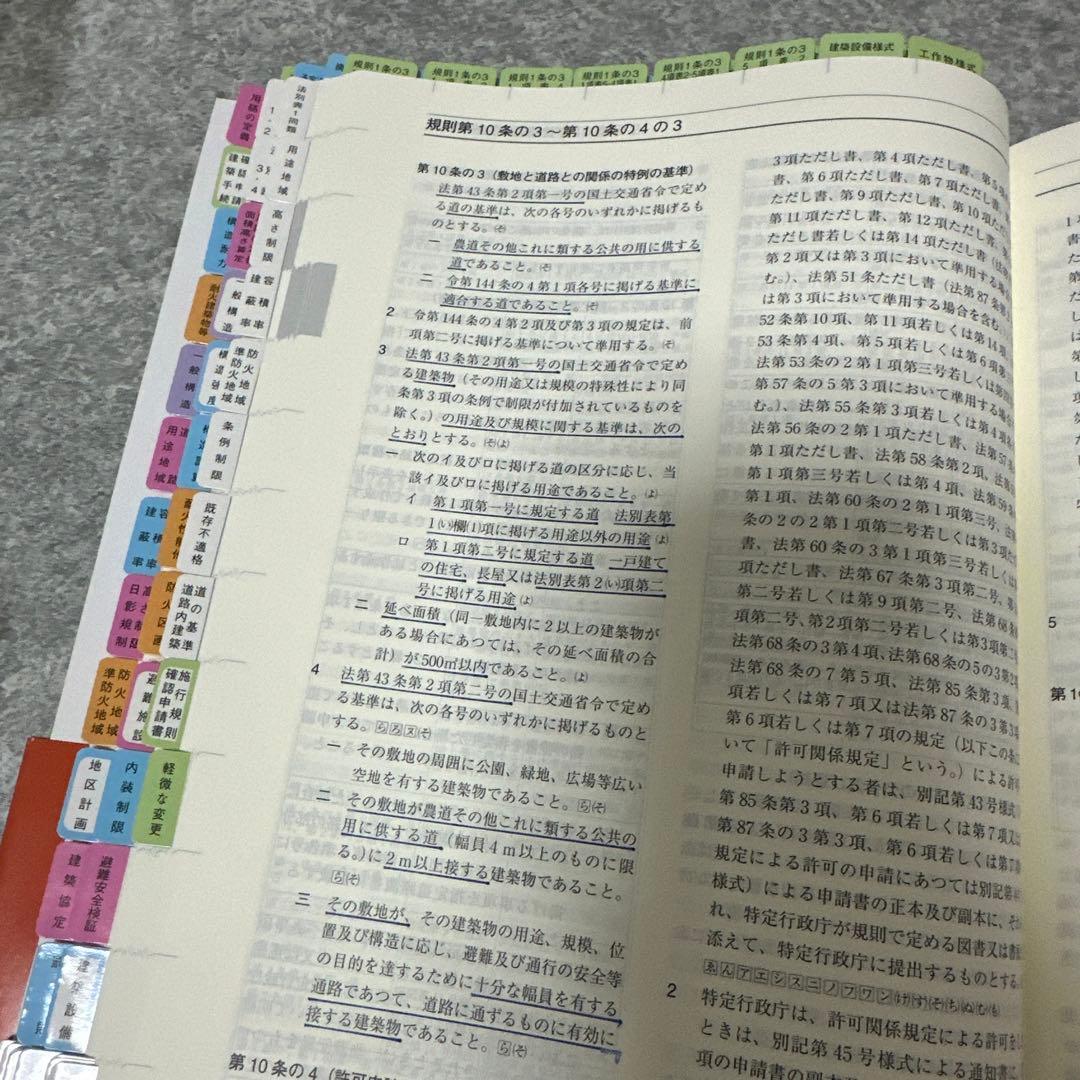 規則第10条の3～第10条の4の3
第10条の3（敷地と道路との関係の特例の基準）
法第43条第2項第一号の国土交通省令で定め
る道の基準は、次の各号のいずれかに掲げるも
のとする。
一 農道その他これに類する公共の用に供する
道であること。(そ)
二 令第144条の4第1項各号に掲げる基準に
適合する道であること。(そ)
2 令第144条の4第2項及び第3項の規定は、前
項第二号に掲げる基準について準用する。(そ)
3 法第43条第2項第一号の国土交通省令で定め
る建築物（その用途又は規模の特殊性により同
条第3項の条例で制限が付加されているものを
除く。）の用途及び規模に関する基準は、次の
とおりとする。(そ)(よ)
一 次のイ及びロに掲げる道の区分に応じ、当
該イ及びロに掲げる用途であること。(よ)
イ 第1項第一号に規定する道 法別表第
1(い)欄(1)項に掲げる用途以外の用途(よ)
ロ 第1項第二号に規定する道 一戸建て
の住宅、長屋又は法別表第2(い)項第二
号に掲げる用途(よ)
二 延べ面積（同一敷地内に2以上の建築物が
ある場合にあつては、その延べ面積の合
計）が500㎡以内であること。(よ)
4 法第43条第2項第二号の国土交通省令で定め
る基準は、次の各号のいずれかに掲げるものと
する。
一 その敷地の周囲に公園、緑地、広場等広い
空地を有する建築物であること。
二 その敷地が農道その他これに類する公共の
用に供する道（幅員4m以上のものに限
る。）に2m以上接する建築物であること。
三 その敷地が、その建築物の用途、規模、位
置及び構造に応じ、避難及び通行の安全等
の目的を達するために十分な幅員を有する
通路であつて、道路に通ずるものに有効に
接する建築物であること。
第10条の4
3項ただし書、第4項ただし書、第5項
書、第6項ただし書、第7項ただし
ただし書、第9項ただし書、第10項
第11項ただし書、第12項ただし書、
ただし書若しくは第14項ただし書
第2項又は第3項において準用する
む。）、法第51条ただし書（法第87条
は第3項において準用する場合を含む。）
52条第10項、第11項若しくは第14項
53条第4項、第5項若しくは第6項
法第53条の2第1項第三号若しくは
第57条の5第3項において準用する
む。）、法第55条第3項若しくは第4項
第56条の2第1項ただし書、法第57条
1項ただし書、法第58条第2項、法第59条
第1項第三号若しくは第4項、法第59条
第1項、法第60条の2第1項第三号、
条の2の2第1項第二号若しくは第3項
書、法第60条の3第1項第三号若しくは
項ただし書、法第67条第3項第二号、
第二号若しくは第9項第二号、法第68条
第二号、第2項第二号若しくは第3項第二
法第68条の3第4項、法第68条の5の3第2
法第68条の7第5項、法第85条第3項、
項若しくは第7項又は法第87条の3第3
第6項若しくは第7項の規定（以下この条に
いて「許可関係規定」という。）による許
申請しようとする者は、別記第43号様式
第85条第3項、第6項若しくは第7項又
第87条の3第3項、第6項若しくは第7
規定による許可の申請にあつては別記第
様式）による申請書の正本及び副本に、そ
れ、特定行政庁が規則で定める図書又は書
添えて、特定行政庁に提出するものとする
2 特定行政庁は、許可関係規定による許可を
ときは、別記第45号様式による通知書に
項の申請書の副本
規則1条の3
規則1条の3
規則1条の3
規則1条の3
規則1条の3
規則1条の3
建築設備様式
工作物様式
用語の定義
用途地域
高さ制限
容積率
建蔽率
防火地域
準防火地域
条例制限
既存不適格
道の基準
道路内建築
施行規則
確認申請書
軽微な変更
内装制限
地区計画
避難安全検証
建築協定
建築設備
防火地域
準防火地域
高さ制限
日影規制
防火区画
容積率
建蔽率
用途地域
一般構造
耐火建築物等
構造耐力
一般構造
5